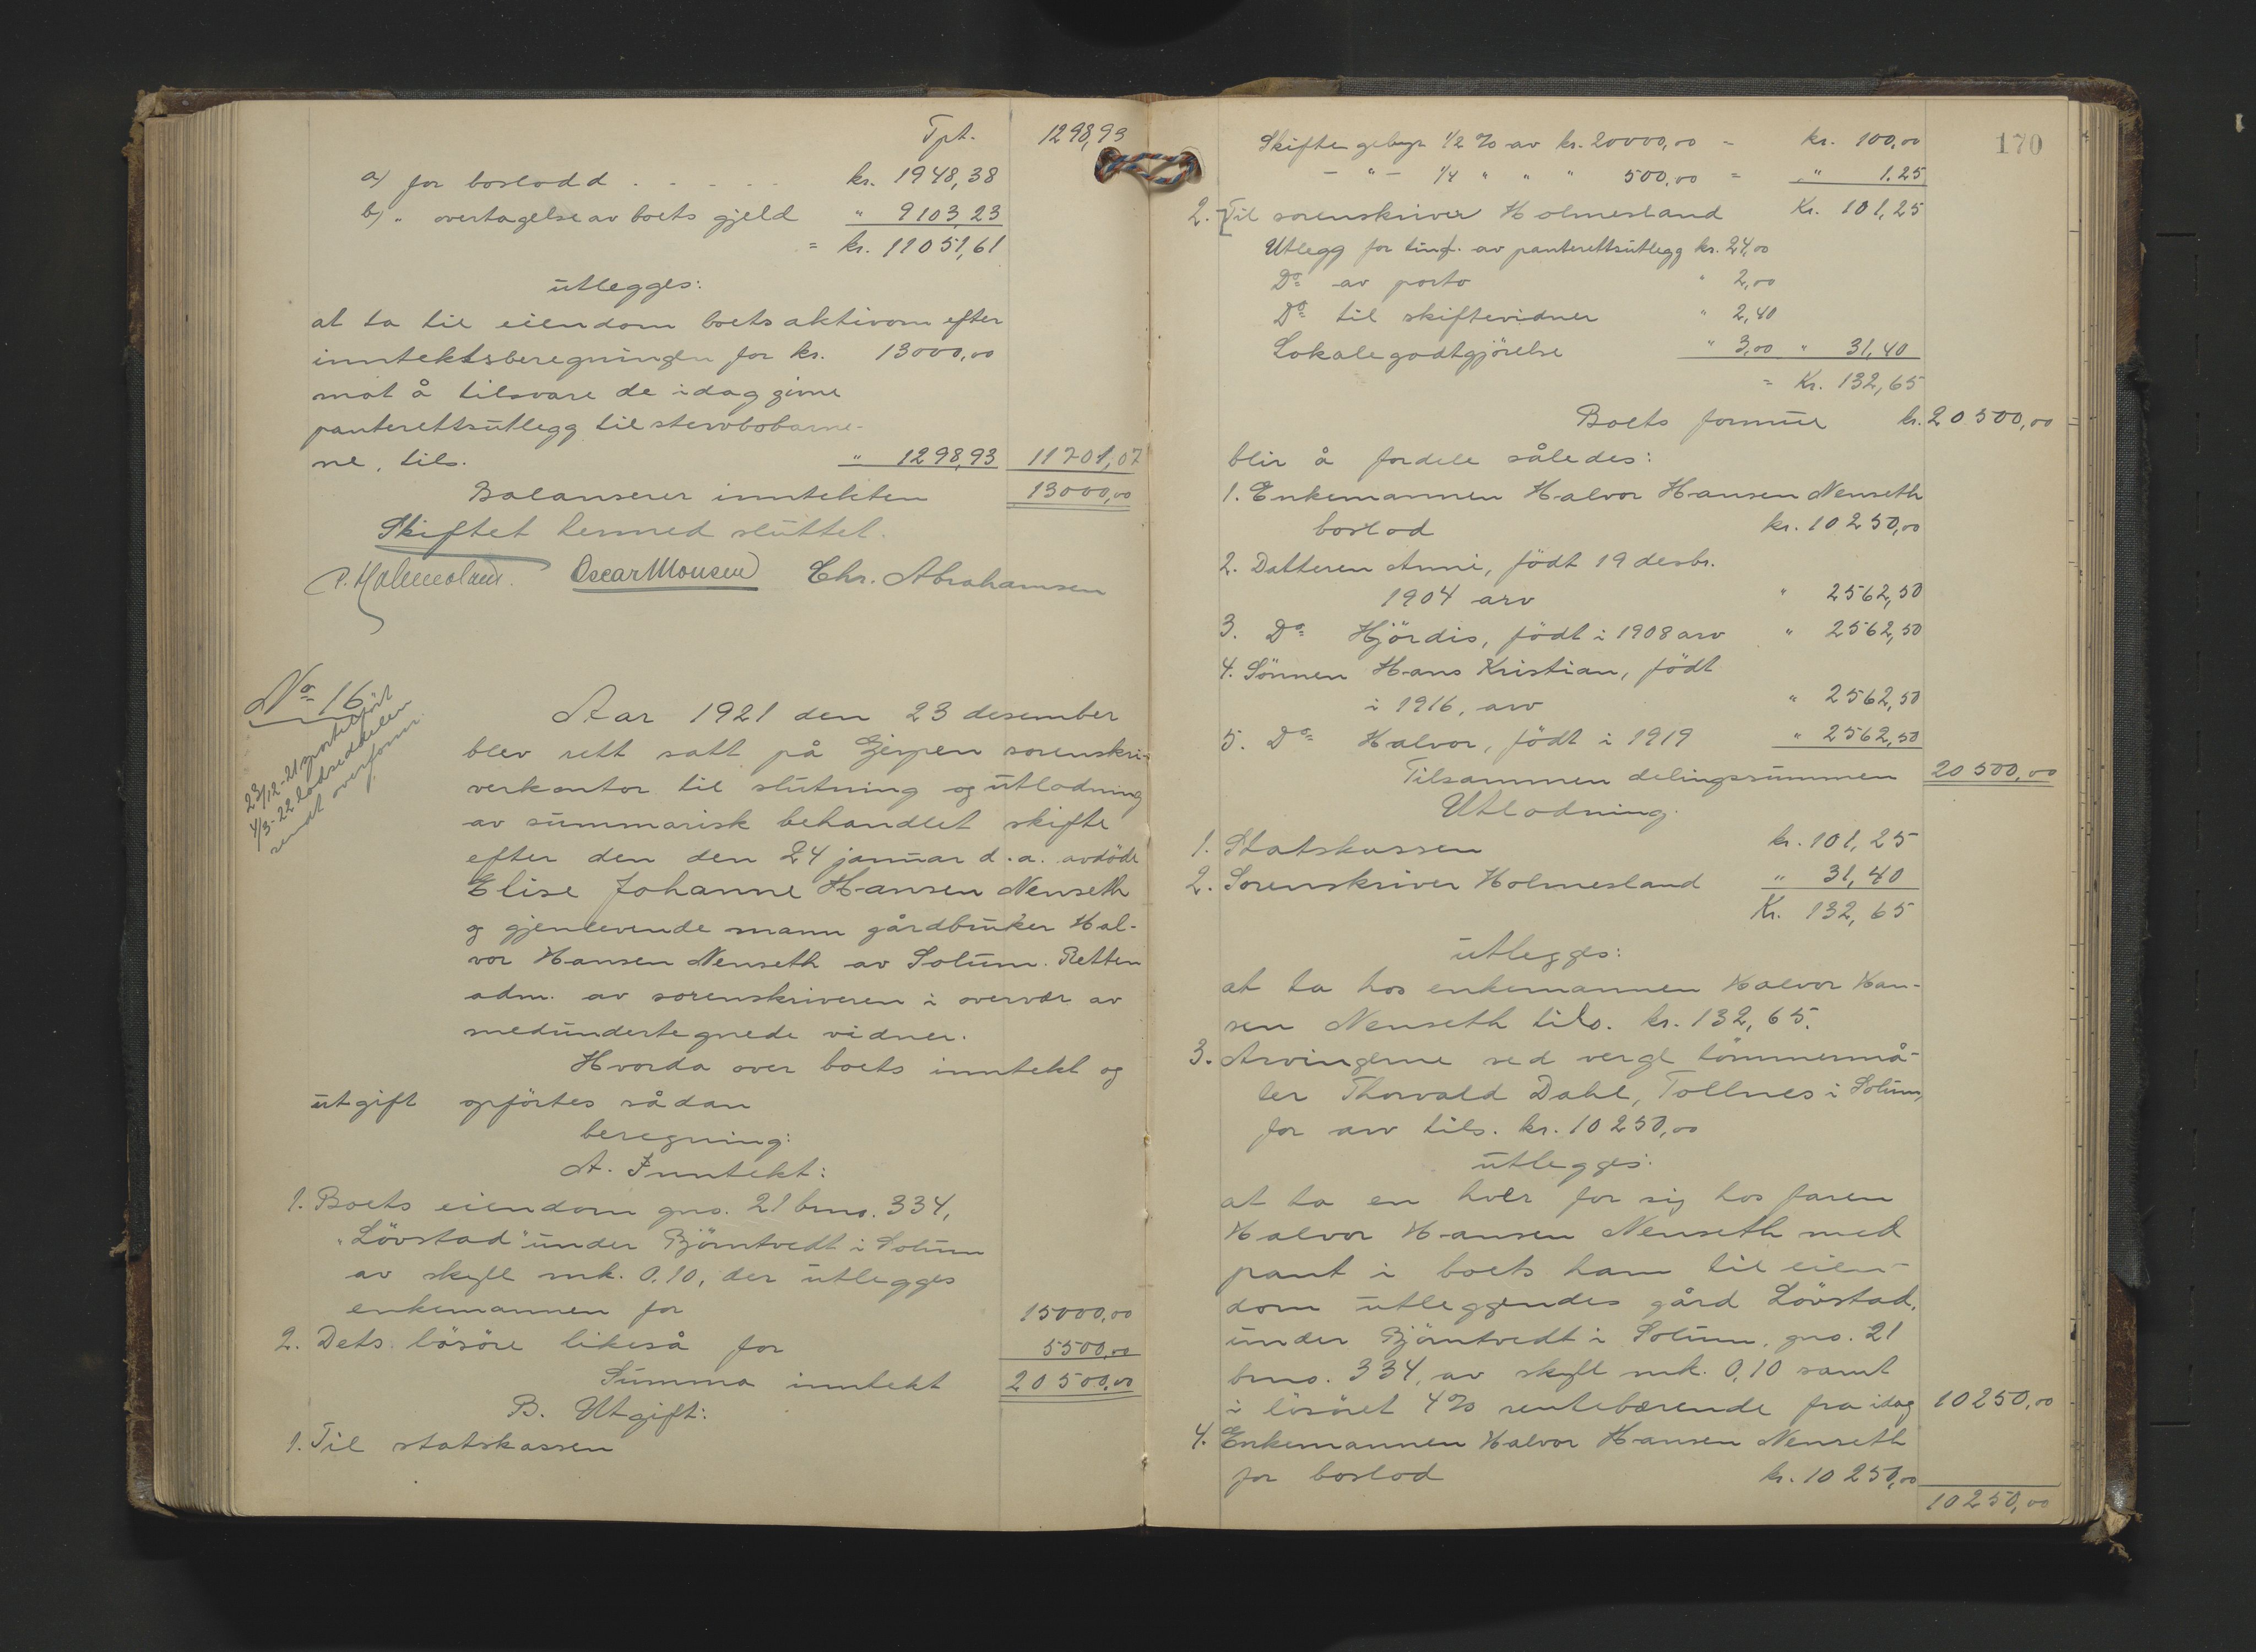 Tpt. 1298,93
a) for boslodd . . . . . kr. 1948,38
b) " overtagelse av boets gjeld " 9103,23
= kr. 11051,61
utlegges:
at ta til eiendom boets aktivom efter
inntektsberegningen for kr. 13000,00
mot å tilsvare de idag givne
panterettsutlegg til stervbobarne-
ne, tils. " 1298,93 11701,07
Balanserer inntekten 13000,00
Skiftet hermed sluttet.
P. Holmesland. Oscar Monsen Chr. Abrahamsen
No 16
23/12-21
4/3-22 lodseddelen
sendt overform.
Aar 1921 den 23 desember
blev rett satt på Gjerpen sorenskri-
verkontor til slutning og utlodning
av summarisk behandlet skifte
efter den den 24 januar d.a. avdöde
Elise Johanne Hansen Nenseth
og gjenlevende mann gårdbruker Hal-
vor Hansen Nenseth av Solum. Retten
adm. av sorenskriveren i overvær av
medundertegnede vidner.
Hvorda over boets inntekt og
utgift opförtes sådan
beregning:
A. Inntekt:
1. Boets eiendom gno. 21 bno. 334,
"Lövstad" under Björntvedt i Solum
av skyll mk. 0,10, der utlegges
enkemannen for 15000,00
2. Dets lösöre likeså for 5500,00
Summa inntekt 20500,00
B. Utgift:
1. Til statskassen
170
Skiftegebyr 1/2 % av kr. 20000,00 = kr. 100,00
- " - 1/4 " " " 500,00 = " 1.25
Kr. 101,25
2. Til sorenskriver Holmesland
Utlegg for tingl. av panterettsutlegg kr. 24,00
Do av porto " 2,00
Do til skiftevidner " 2,40
Lokalegodtgjörelse " 3,00 " 31,40
= Kr. 132,65
Boets formue kr. 20500,00
blir å fordele således:
1. Enkemannen Halvor Hansen Nenseth
boslod kr. 10250,00
2. Datteren Anni, födt 19 desbr.
1904 arv " 2562,50
3. Do Hjördis, födt i 1908 arv " 2562,50
4. Sönnen Hans Kristian, födt
i 1916, arv " 2562,50
5. Do Halvor, födt i 1919 " 2562,50
Tilsammen delingssummen 20500,00
Utlodning.
1. Statskassen kr. 101,25
2. Sorenskriver Holmesland " 31,40
Kr. 132,65
utlegges:
at ta hos enkemannen Halvor Han-
sen Nenseth tils. kr. 132,65.
3. Arvingerne ved verge tömmermå-
ler Thorvald Dahl, Tollnes i Solum,
for arv tils. kr. 10250,00
utlegges:
at ta en hver for sig hos faren
Halvor Hansen Nenseth med
pant i boets ham til eien-
dom utleggendes gård Lövstad,
under Björntvedt i Solum, gno. 21
bno. 334, av skyll mk. 0,10 samt
i lösöret 4% rentebærende fra idag 10250,00
4. Enkemannen Halvor Hansen Nenseth
for boslod kr. 10250,00
10250,00